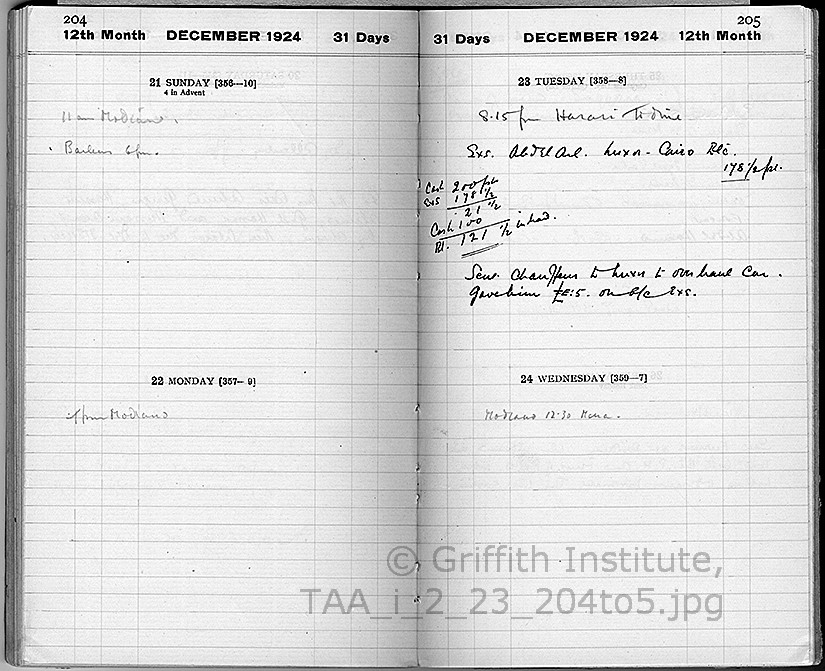 204
12th Month DECEMBER 1924 31 Days
21 SUNDAY [356—10]
4 in Advent
11 am Modiano.
6 pm.
22 MONDAY [357—9]
Modiano
205
31 Days DECEMBER 1924 12th Month
23 TUESDAY [358—8]
8.15 pm Harari to dine
Exs. Abd El Aal. Luxor - Cairo Etc.
178 1/2 pt.
Cash 200 pt
Exs 178 1/2
21 1/2
Cash 100
Bl. 121 1/2 in hand.
Sent Chauffeur to Luxor to overhaul Car.
Gave him £E.5. on a/c Exs.
24 WEDNESDAY [359—7]
Modiano 12.30 Mena.
© Griffith Institute,
TAA_i_2_23_204to5.jpg